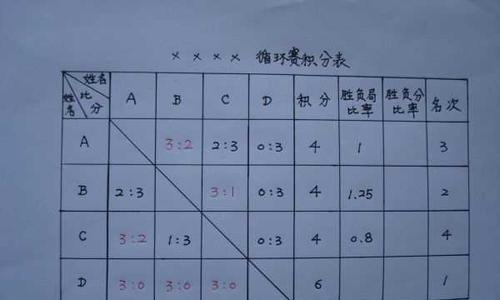 × × × × 循环赛积分表
姓名 比分 姓名 A B C D 积分 胜负局比率 胜负分比率 名次
A 3:2 2:3 0:3 4 1 3
B 2:3 3:1 0:3 4 1.25 2
C 3:2 1:3 0:3 4 0.8 4
D 3:0 3:0 3:0 6 1